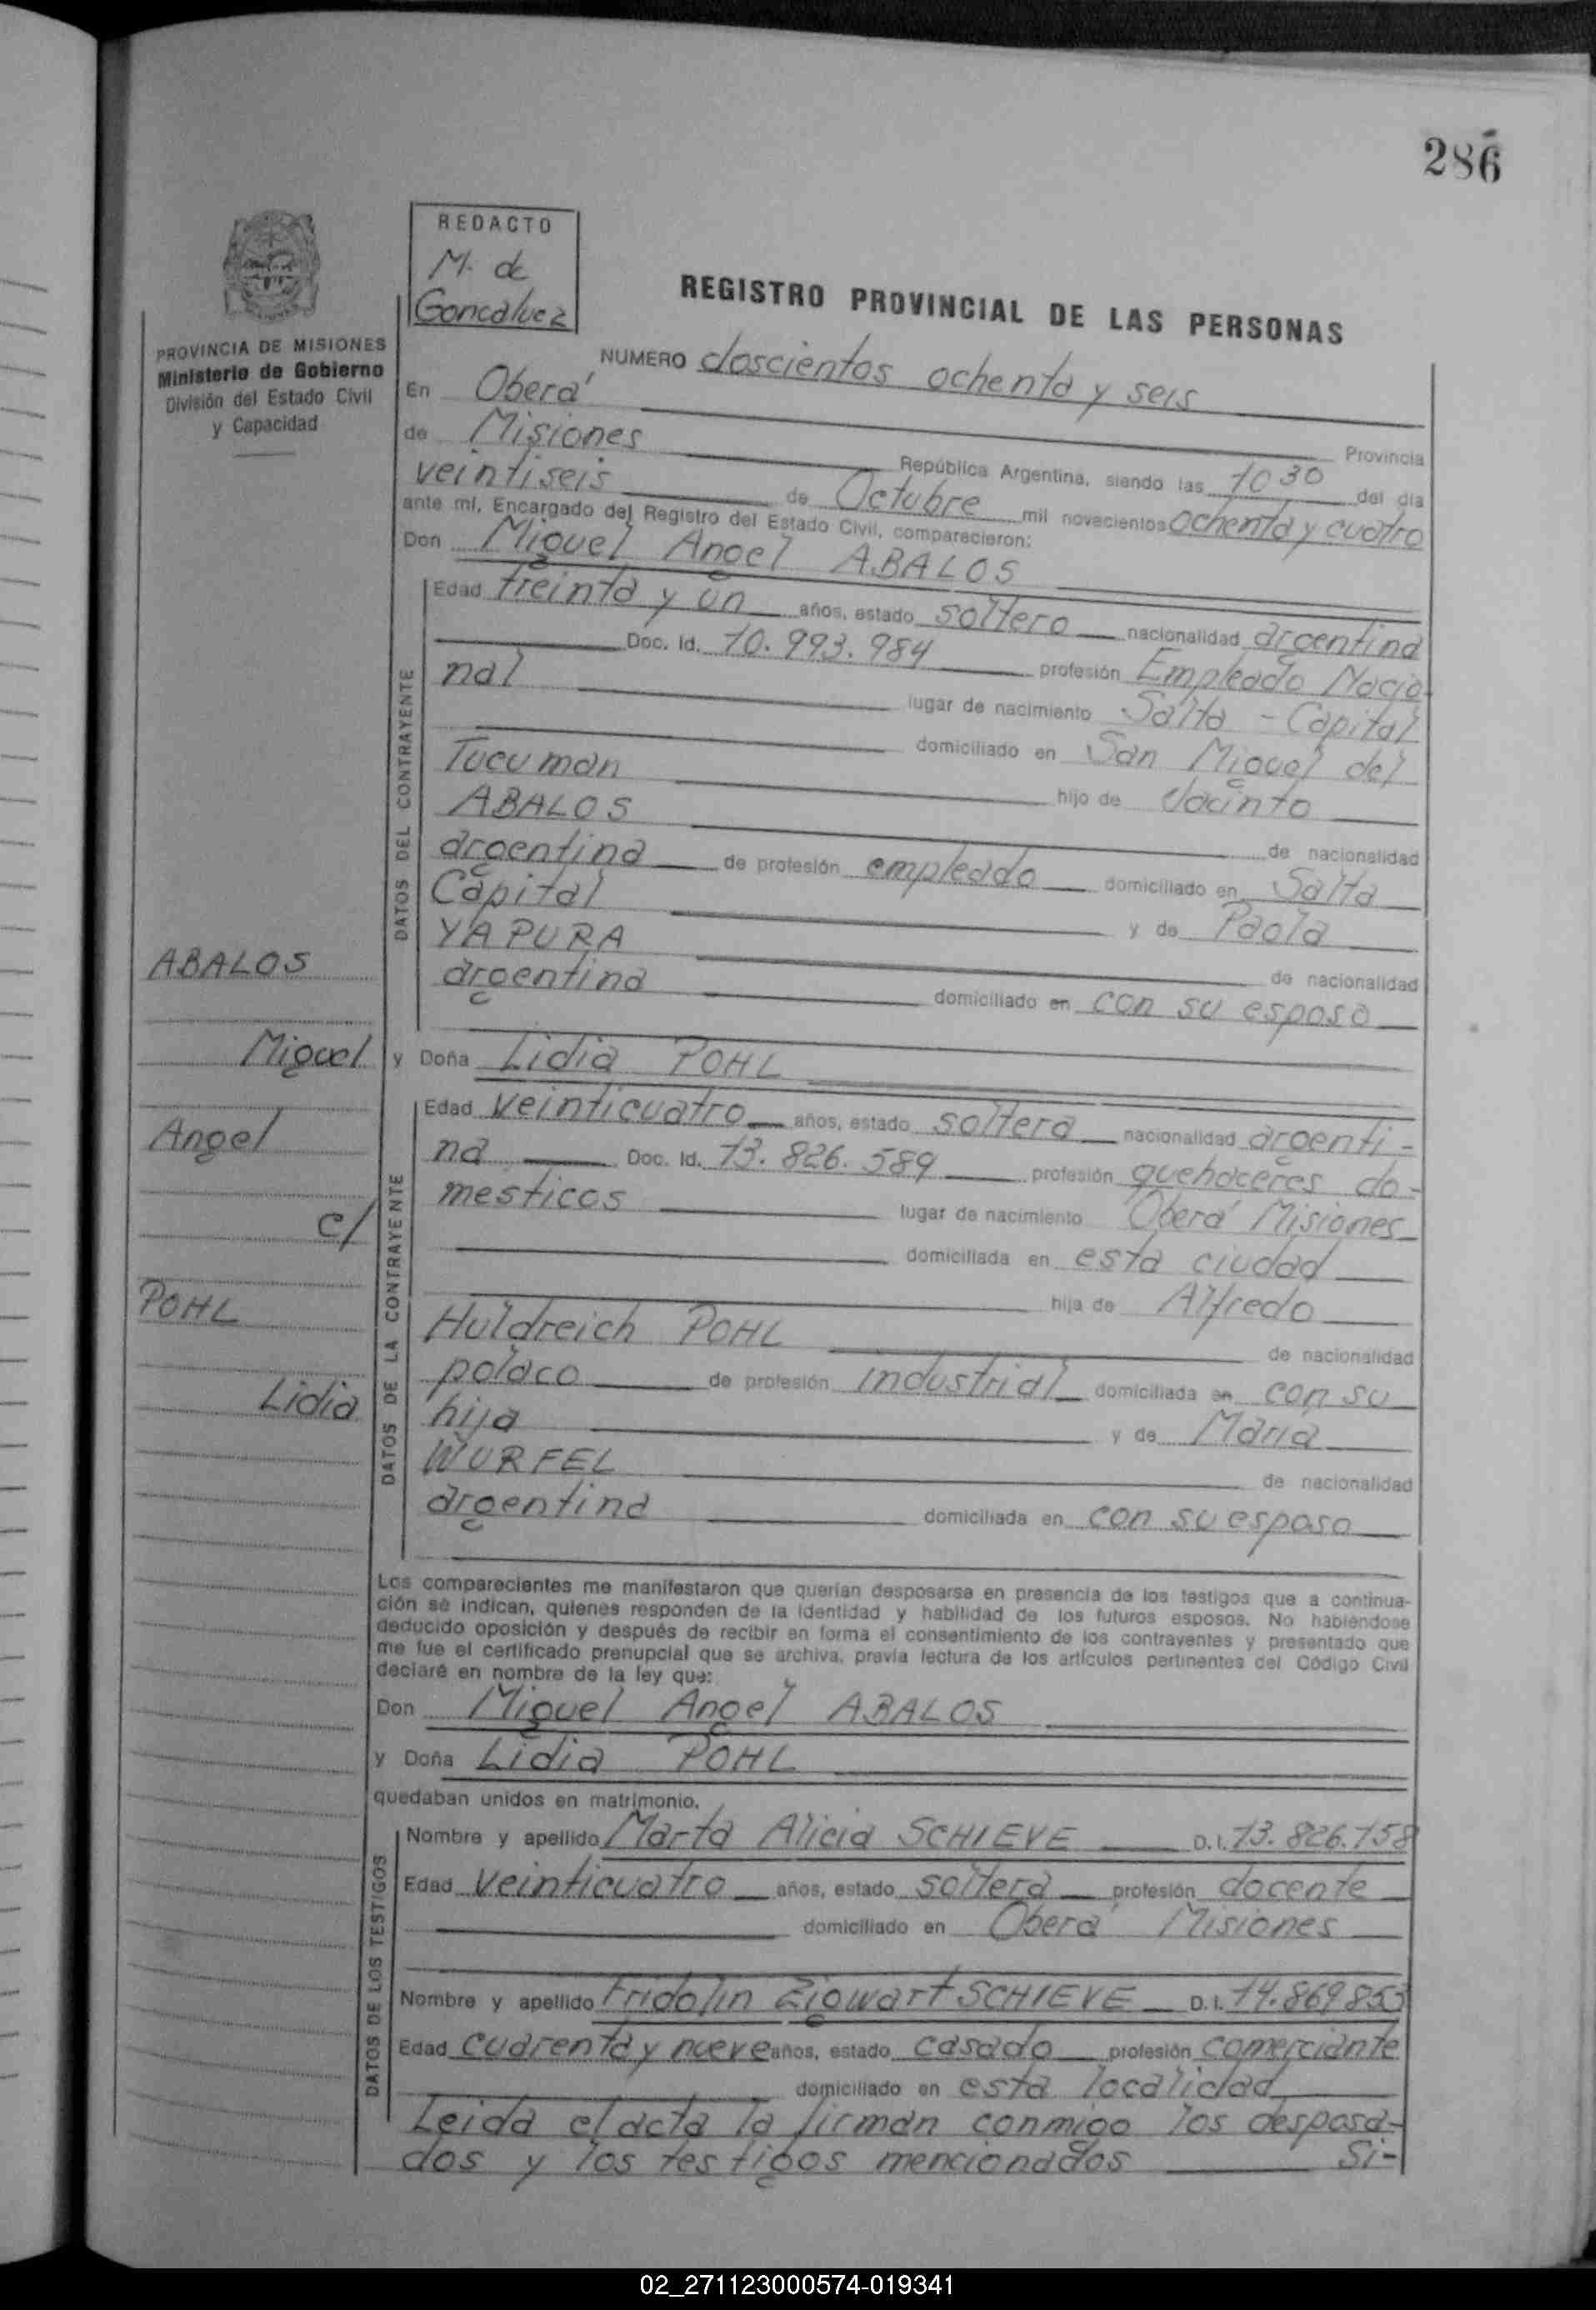 286
REDACTO
M. de
Goncalvez
PROVINCIA DE MISIONES
Ministerio de Gobierno
División del Estado Civil
y Capacidad
REGISTRO PROVINCIAL DE LAS PERSONAS
NUMERO doscientos ochenta y seis
En Oberá
de Misiones Provincia
República Argentina, siendo las 10 30 del día
veintiseis de Octubre mil novecientos ochenta y cuatro
ante mí, Encargado del Registro del Estado Civil, comparecieron:
Don Miguel Angel ABALOS
DATOS DEL CONTRAYENTE
Edad treinta y un años, estado soltero nacionalidad argentina
Doc. Id. 10.993.984 profesión Empleado Nacio-
nal lugar de nacimiento Salta - Capital
domiciliado en San Miguel del
Tucuman hijo de Jacinto
ABALOS de nacionalidad
argentina de profesión empleado domiciliado en Salta
Capital y de Paola
YAPURA de nacionalidad
argentina domiciliado en con su esposo
y Doña Lidia POHL
DATOS DE LA CONTRAYENTE
Edad veinticuatro años, estado soltera nacionalidad argenti-
na Doc. Id. 13.826.589 profesión quehaceres do-
mesticos lugar de nacimiento Oberá Misiones
domiciliada en esta ciudad
hija de Alfredo
Huldreich POHL de nacionalidad
polaco de profesión industrial domiciliada en con su
hija y de Maria
WURFEL de nacionalidad
argentina domiciliada en con su esposo
ABALOS
Miguel
Angel
c/
POHL
Lidia
Los comparecientes me manifestaron que querían desposarse en presencia de los testigos que a continua-
ción se indican, quienes responden de la identidad y habilidad de los futuros esposos. No habiéndose
deducido oposición y después de recibir en forma el consentimiento de los contrayentes y presentado que
me fue el certificado prenupcial que se archiva, previa lectura de los artículos pertinentes del Código Civil
declaré en nombre de la ley que:
Don Miguel Angel ABALOS
y Doña Lidia POHL
quedaban unidos en matrimonio.
DATOS DE LOS TESTIGOS
Nombre y apellido Marta Alicia SCHIEVE D.I. 13.826.158
Edad veinticuatro años, estado soltera profesión docente
domiciliado en Oberá Misiones
Nombre y apellido Fridolin Zigwart SCHIEVE D.I. 14.869853
Edad cuarenta y nueve años, estado casado profesión comerciante
domiciliado en esta localidad
Leida el acta la firman conmigo los desposa-
dos y los testigos mencionados Si-
02_271123000574-019341